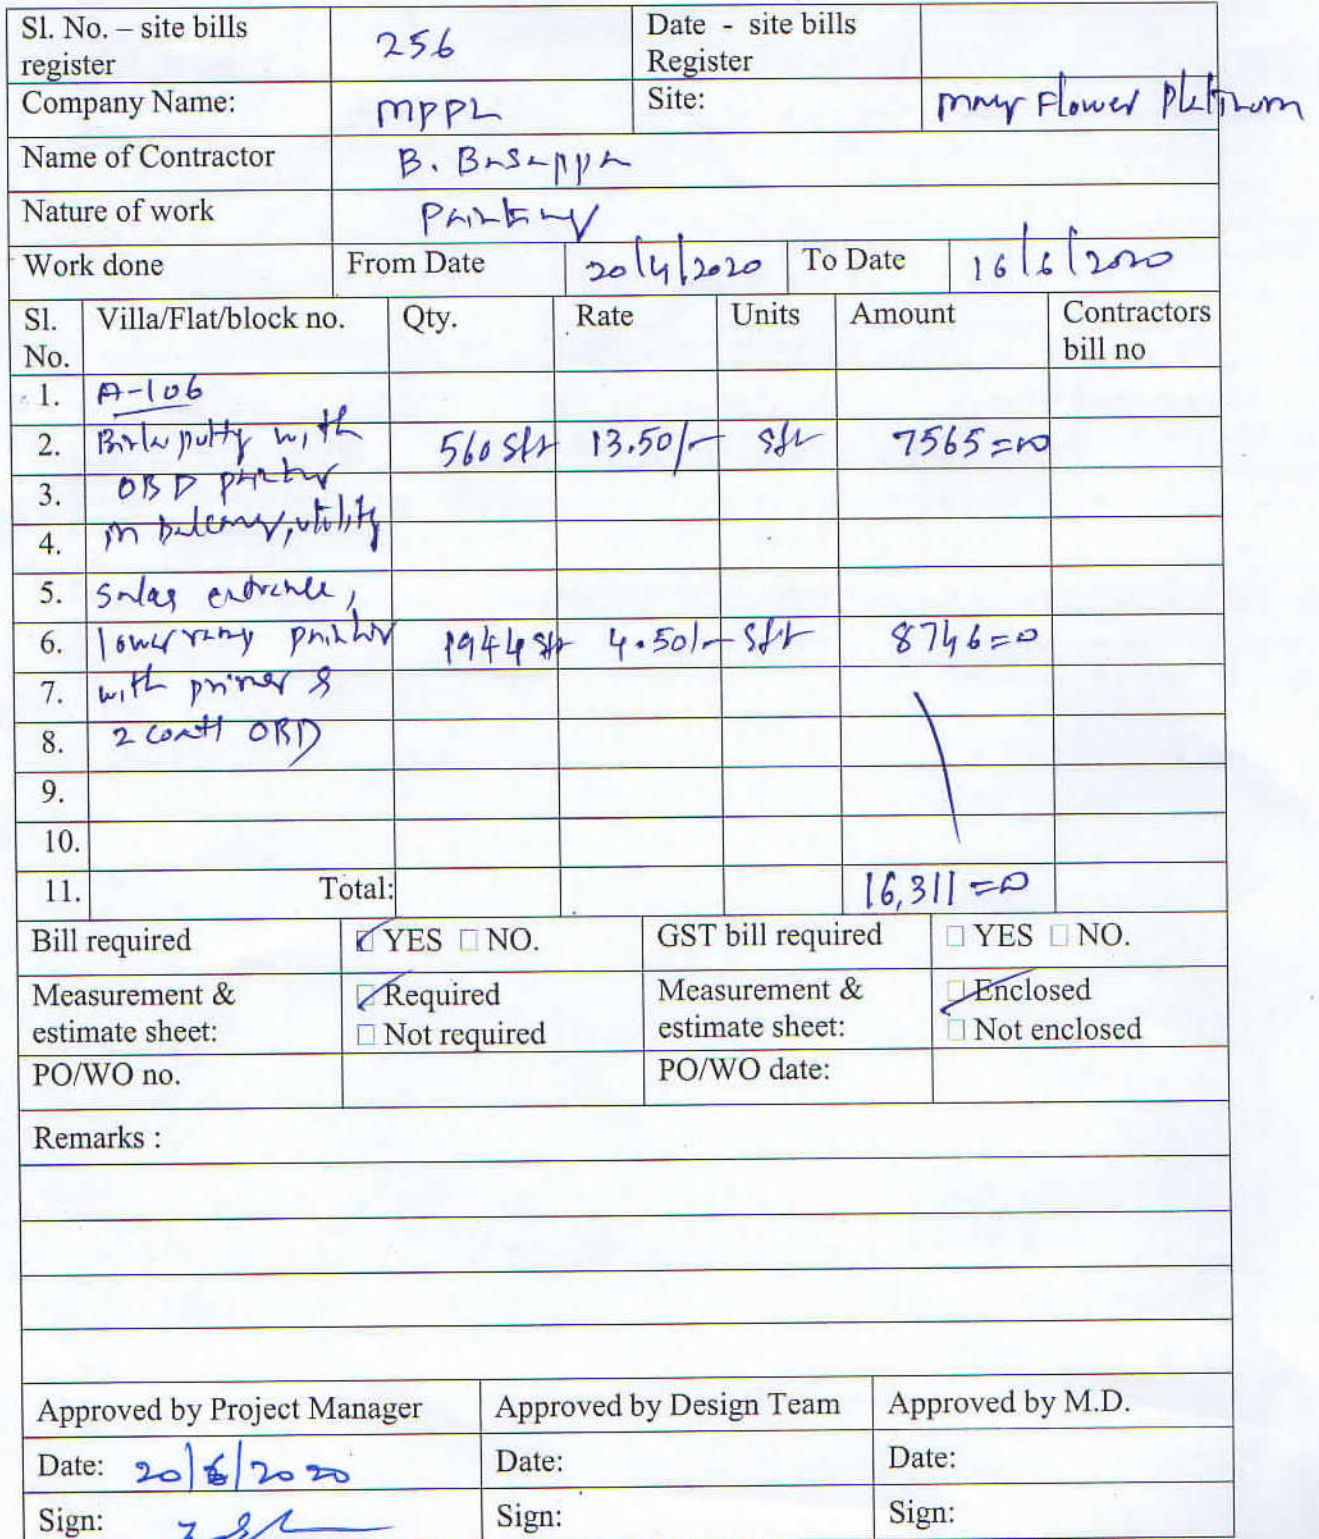 Sl. No. – site bills register 256 Date - site bills Register
Company Name: MPPL Site: may Flower Platinum
Name of Contractor B. Basappa
Nature of work Painting
Work done From Date 20/4/2020 To Date 16/6/2020
Sl. No. Villa/Flat/block no. Qty. Rate Units Amount Contractors bill no
1. A-106
2. Birla putty with 560 sft 13.50/- sft 7565=00
3. OBD painting
4. in balcony, utility
5. sales entrance,
6. painting 1944 sft 4.50/- sft 8746=0
7. with primer &
8. 2 coatt OBD
9.
10.
11. Total: 16,311=0
Bill required YES NO. GST bill required YES NO.
Measurement & estimate sheet: Required Measurement & estimate sheet: Enclosed
Not required Not enclosed
PO/WO no. PO/WO date:
Remarks :
Approved by Project Manager Approved by Design Team Approved by M.D.
Date: 20/6/2020 Date: Date:
Sign: Sign: Sign: